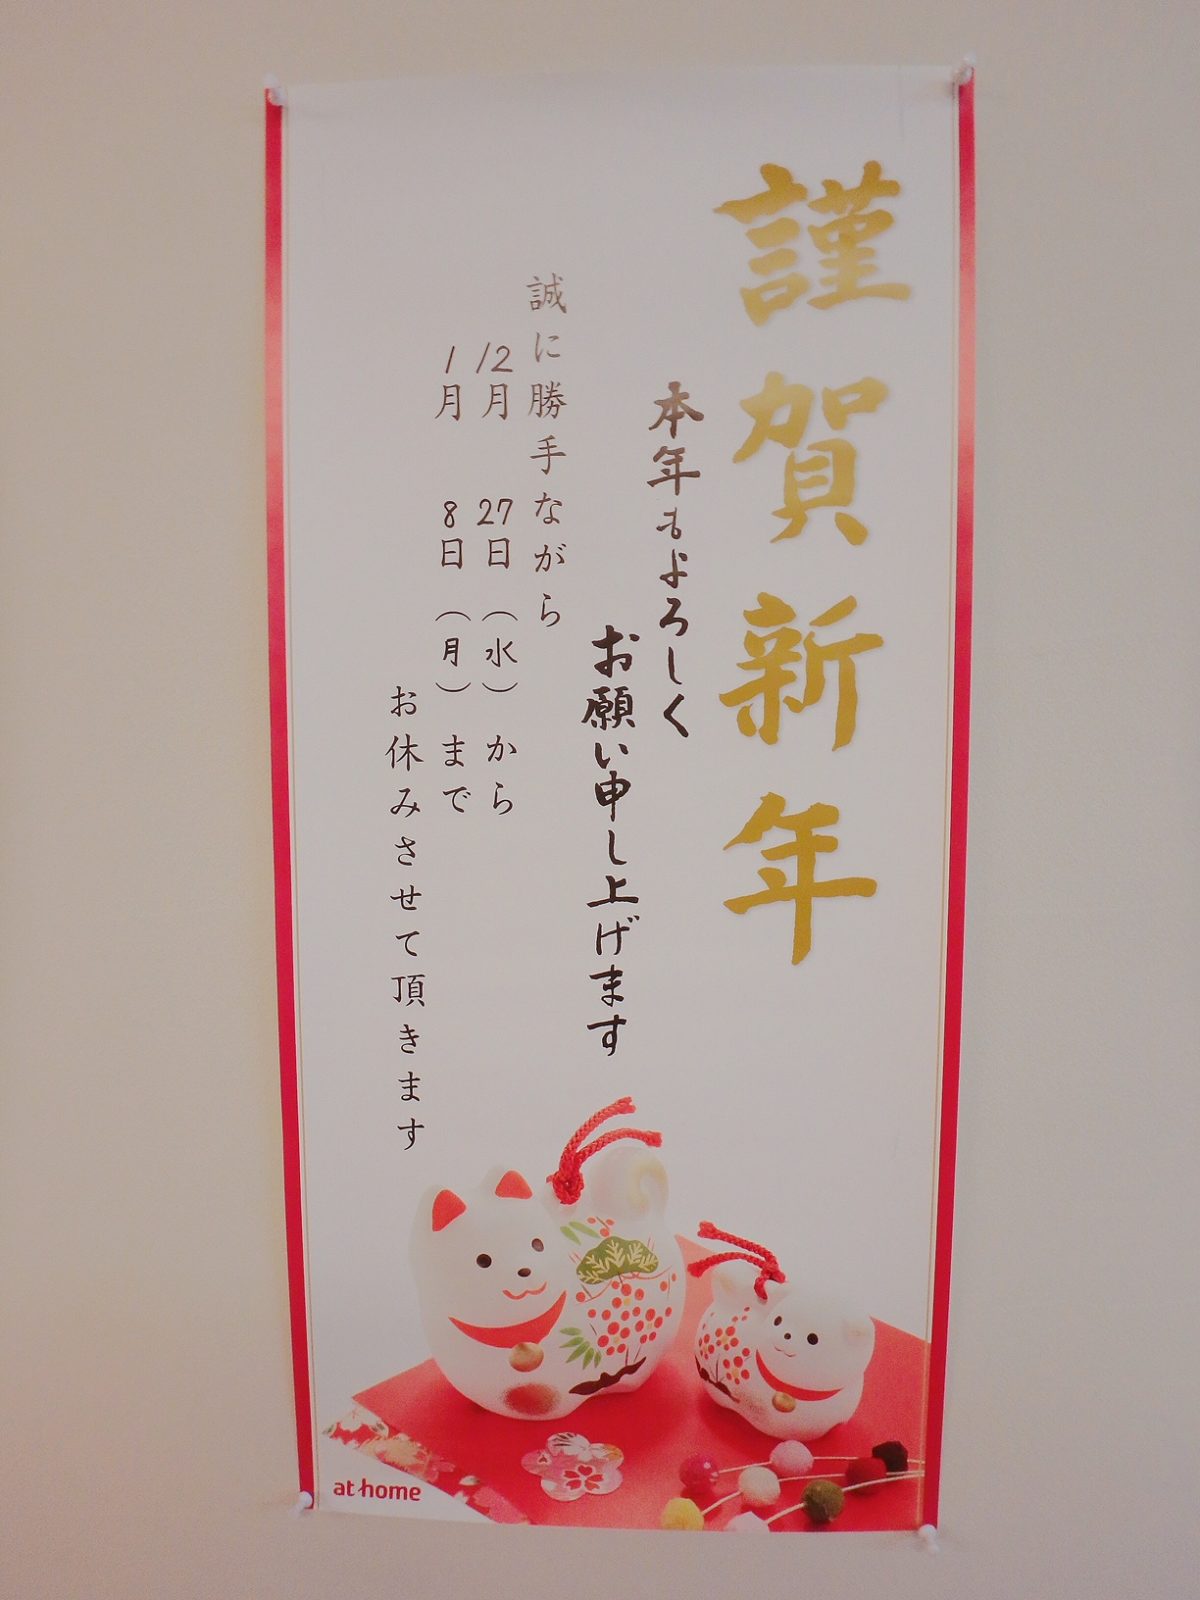 謹賀新年
本年もよろしく
お願い申し上げます
誠に勝手ながら
12月 27日（水）から
1月 8日（月）まで
お休みさせて頂きます
at home